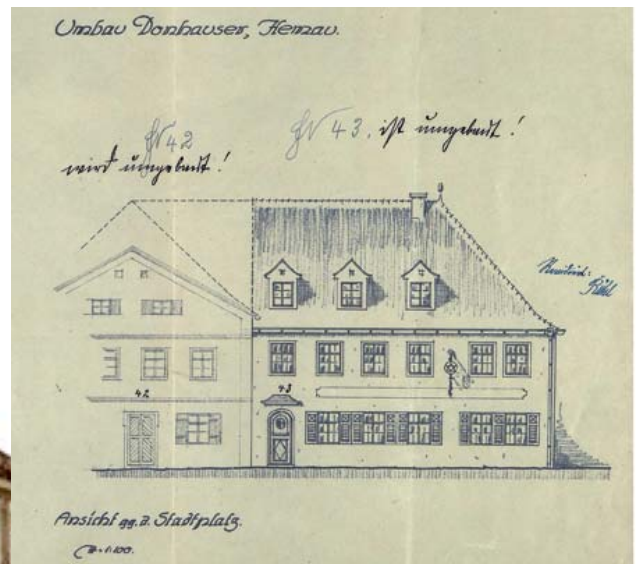 Umbau Donhauser, Hemau.
HN 42
wird umgebaut!
HN 43. ist umgebaut!
42
43
Ansicht gg. d. Stadtplatz.
M = 1:100.